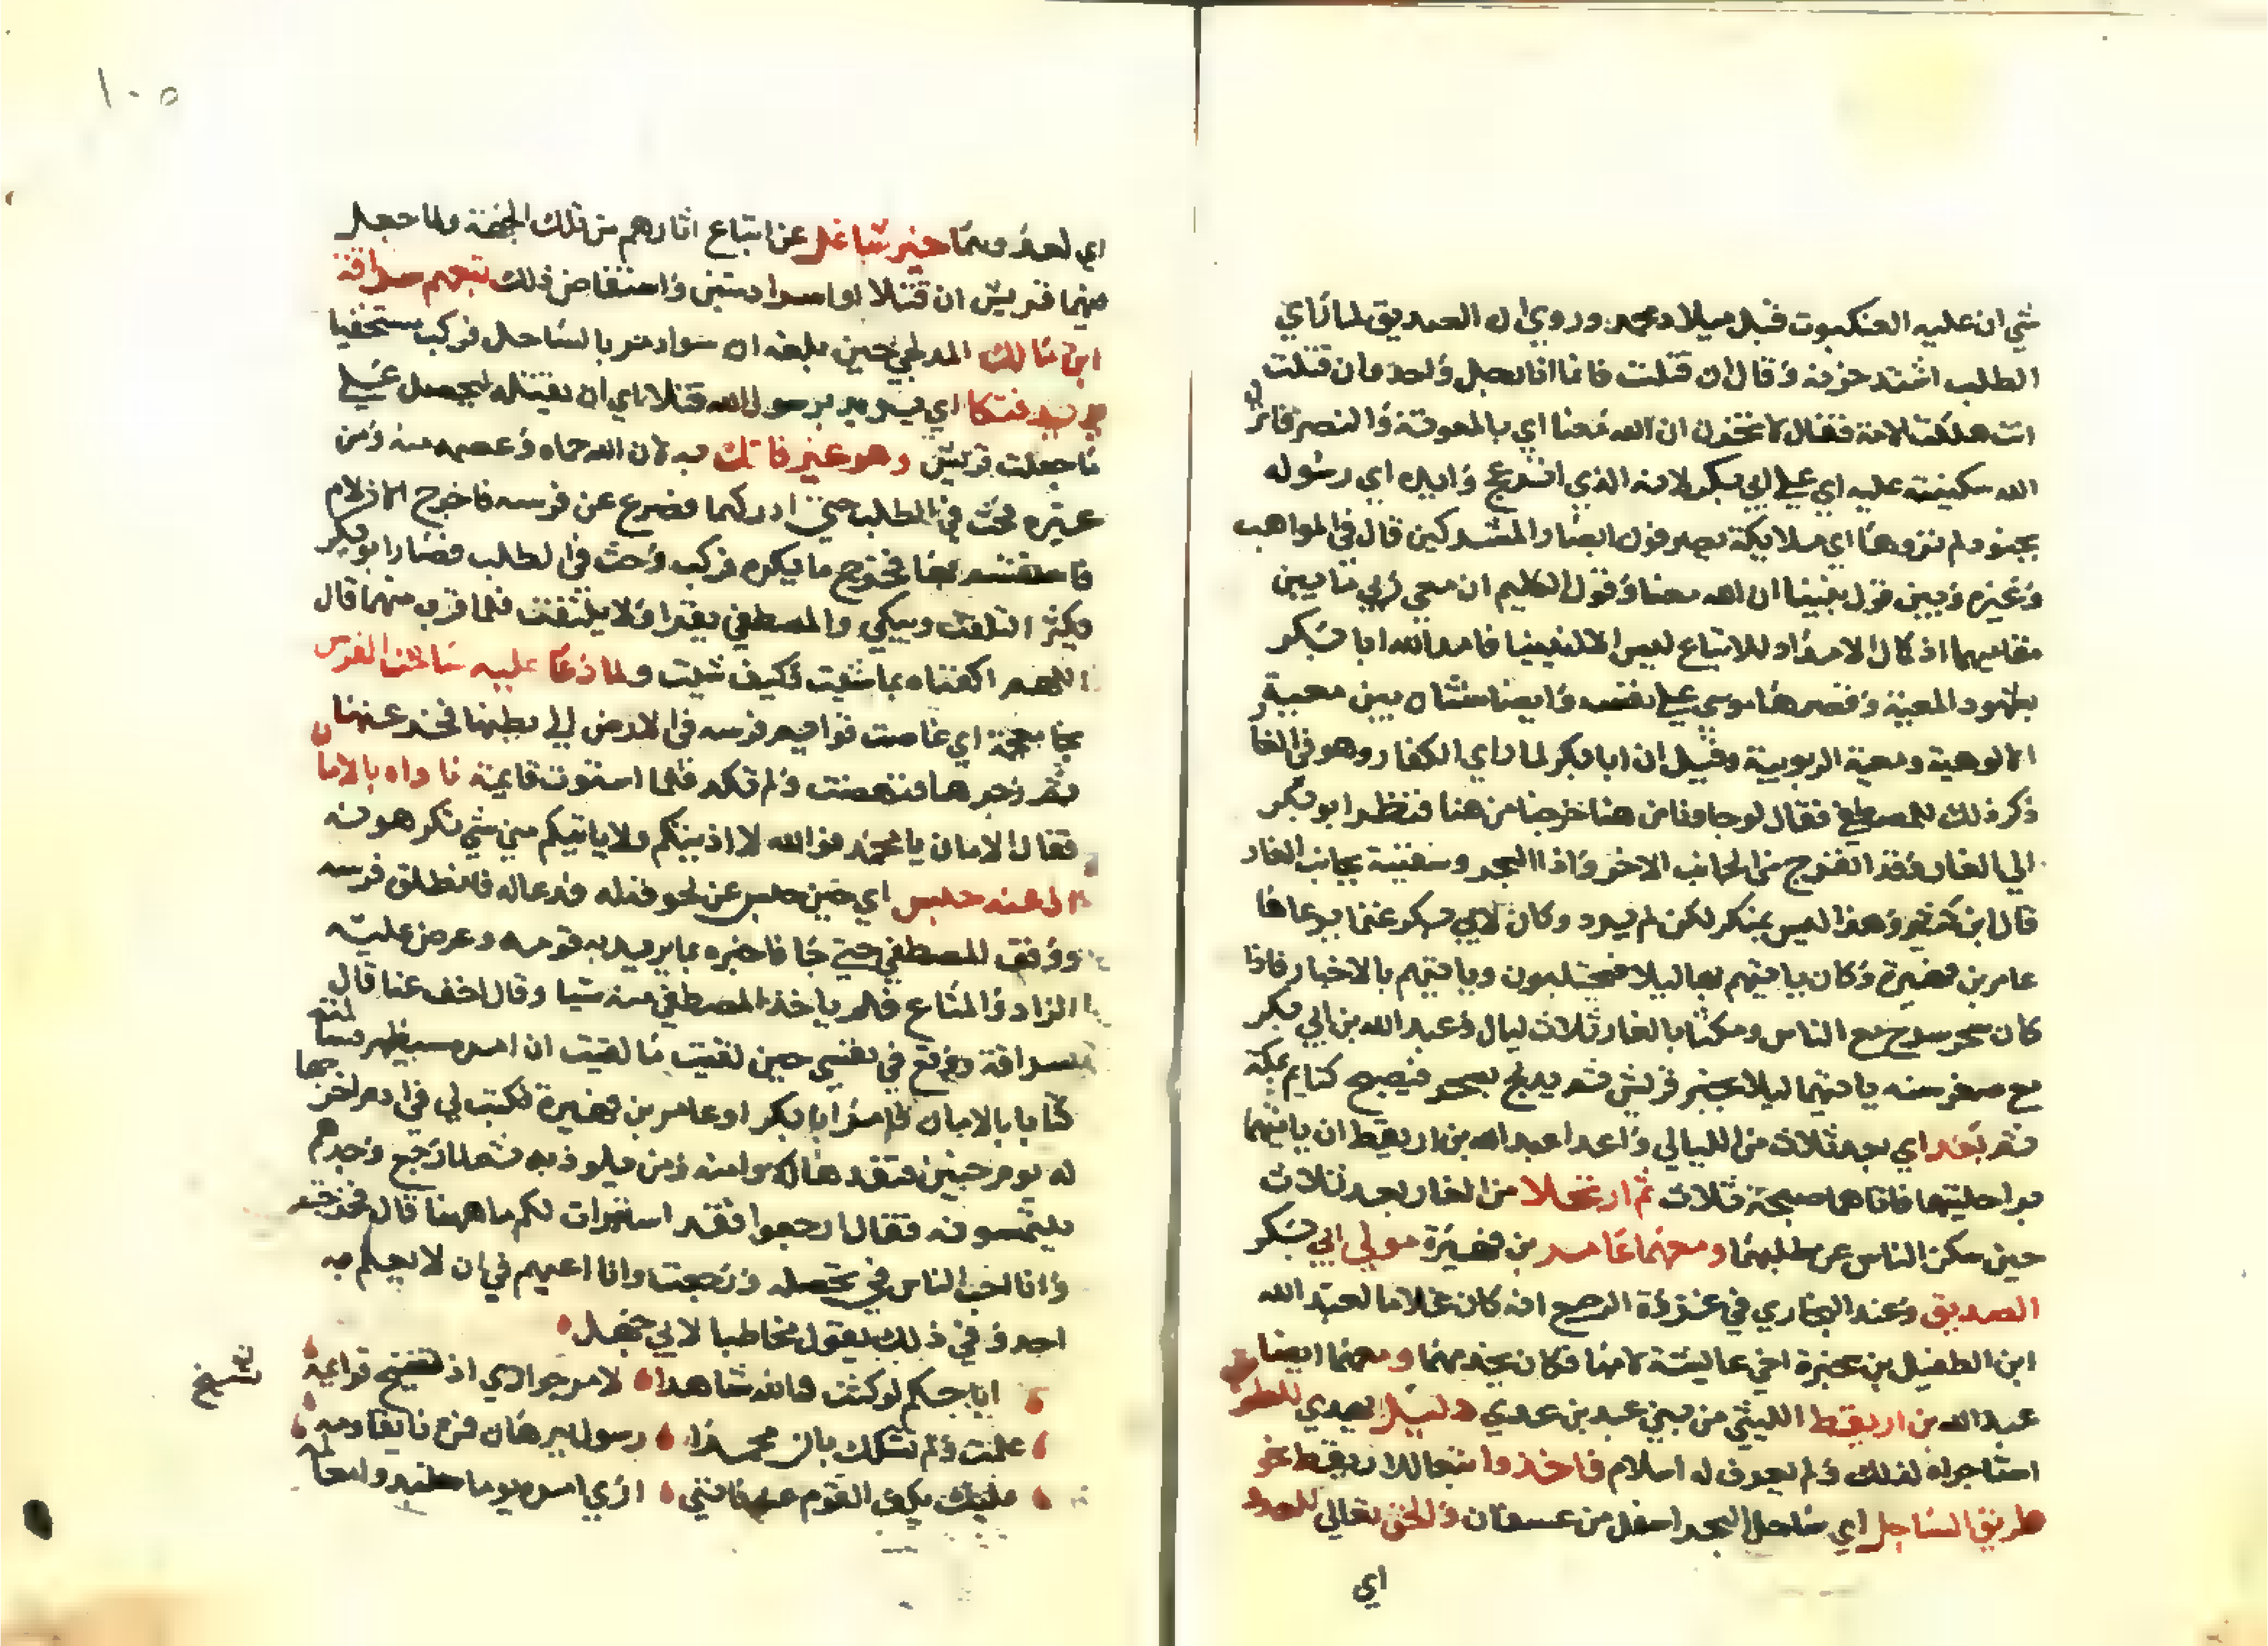 شي ان عليه العنكبوت قبل ميلاد محمد وروي ان الصديق لما راي
الطلب اشتد حزنه وقال ان قتلت فانما انا رجل واحد وان قتلت
انت هلكت الامة فقال لا تحزن ان الله معنا اي بالمعونة والنصر فانزل
الله سكينته عليه اي علي ابي بكر لانه الذي انزعج وايده اي رسوله
بجنود لم تروها اي ملايكة يصرفون ابصار المشركين قال في المواهب
وغيره وبين قول نبينا ان الله معنا وقول الكليم ان معي ربي تباين
مقاميهما اذ كان الامداد للاتباع ليس الا لنبينا فامد الله ابا بكر
بشهود المعية وقصرها موسي علي نفسه وايضا شتان بين معية
الالوهية ومعية الربوبية وقيل ان ابا بكر لما راي الكفار وهو في الغار
ذكر ذلك للمصطفي فقال لو جاونا من هنا خرجنا من هنا فنظر ابو بكر
الي الغار وقد انفرج من الجانب الاخر واذا البحر وسفينة بجانب الغار
قال ابن كثير وهذا ليس بمنكر لكن لم يرد وكان لابي بكر غنما يرعاها
عامر بن فهيرة وكان ياتيهم بها ليلا فيحتلبون وياتيهم بالاخبار فاذا
كان سحر سرح مع الناس ومكثا بالغار ثلاث ليال وعبد الله بن ابي بكر
مع صغر سنه ياتيهما ليلا بخبر قريش ثم يدلج بسحر فيصبح كبايت بمكة
ثم بعد اي بعد ثلاث من الليالي واعدا عبد الله بن اريقط ان ياتيهما
براحلتيهما فاتاهما صبحة ثلاث ثم ارتحلا من الغار بعد ثلاث
حين سكن الناس عن طلبهما ومعهما عامر بن فهيرة مولي ابي بكر
الصديق وعند البخاري في غزوة الرجيع انه كان غلاما لعبد الله
ابن الطفيل بن سخبرة اخي عايشة لامها فكان يخدمهما ومعهما ايضا
عبد الله بن اريقط الليثي من بني عبد بن عدي دليل يهدي للطريق
استاجراه لذلك ولم يعرف له اسلام فاخذ وا تبعا لابن اريقط نحو
طريق الساحل اي ساحل البحر اسفل من عسفان والحق تعالي للعدو
اي
١٠٥
اي لعدوهما خير شاغل عن اتباع اثارهم من تلك الجهة ولما جعل
فيهما قريش ان قتلا او اسرا ديتين واستفاض ذلك تبعهم سراقة
ابن مالك المدلجي حين بلغه ان سوادا مر بالساحل فركب مستخفيا
يريد فتكا اي يريد برسول الله قتلا اي ان يقتله ليحصل علي
ما جعلت قريش وهو غير فاتك به لان الله حماه وعصمه منه ومن
غيره فحث في الطلب حتي ادركهما فصرع عن فرسه فاخرج الازلام
فاستقسم بها فخرج ما يكره فركب وحث في الطلب فصار ابو بكر
يكثر التلفت ويبكي والمصطفي يقرا ولا يلتفت فلما قرب منهما قال
اللهم اكفناه بما شيت وكيف شيت ولما دعا عليه ساخت الفرس
اي غاصت قوايم فرسه في الارض الي بطنها فخر عنها
ثم زجرها فنهضت ولم تكد فلما استوت قايمة ناداه بالامان
فقال الامان يا محمد فوالله لا اذيتكم ولا ياتيكم مني شي تكرهونه
اذ عنه حبس اي حين حبس عن نحو قتله فدعا له فانطلق فرسه
ووقف للمصطفي حتي جا فاخبره بما يريد به قومه وعرض عليه
الزاد والمتاع فلم ياخذ المصطفي منه شيا وقال اخف عنا قال
سراقة وقع في نفسي حين لقيت ما لقيت ان امره سيظهر
كتابا بالامان فامر ابا بكر او عامر بن فهيرة فكتب لي في ادم اخرجها
له يوم حنين فنفذها له وامنه ومن يلوذ به ثم لما رجع وجدهم
يلتمسونه فقال ارجعوا فقد استبرات لكم ما ههنا قال فخرجت
وانا احب الناس في تحصله ورجعت وانا اعيهم في ان لا يعلم به
احد وفي ذلك يقول مخاطبا لابي جهل
ابا حكم لو كنت والله شاهدا لامر جوادي اذ تسيخ قوايمه
علمت ولم تشكك بان محمدا رسول ببرهان فمن ذا يقاومه
عليك بكف القوم عنه فانني اري امره يوما ستبدو معالمه